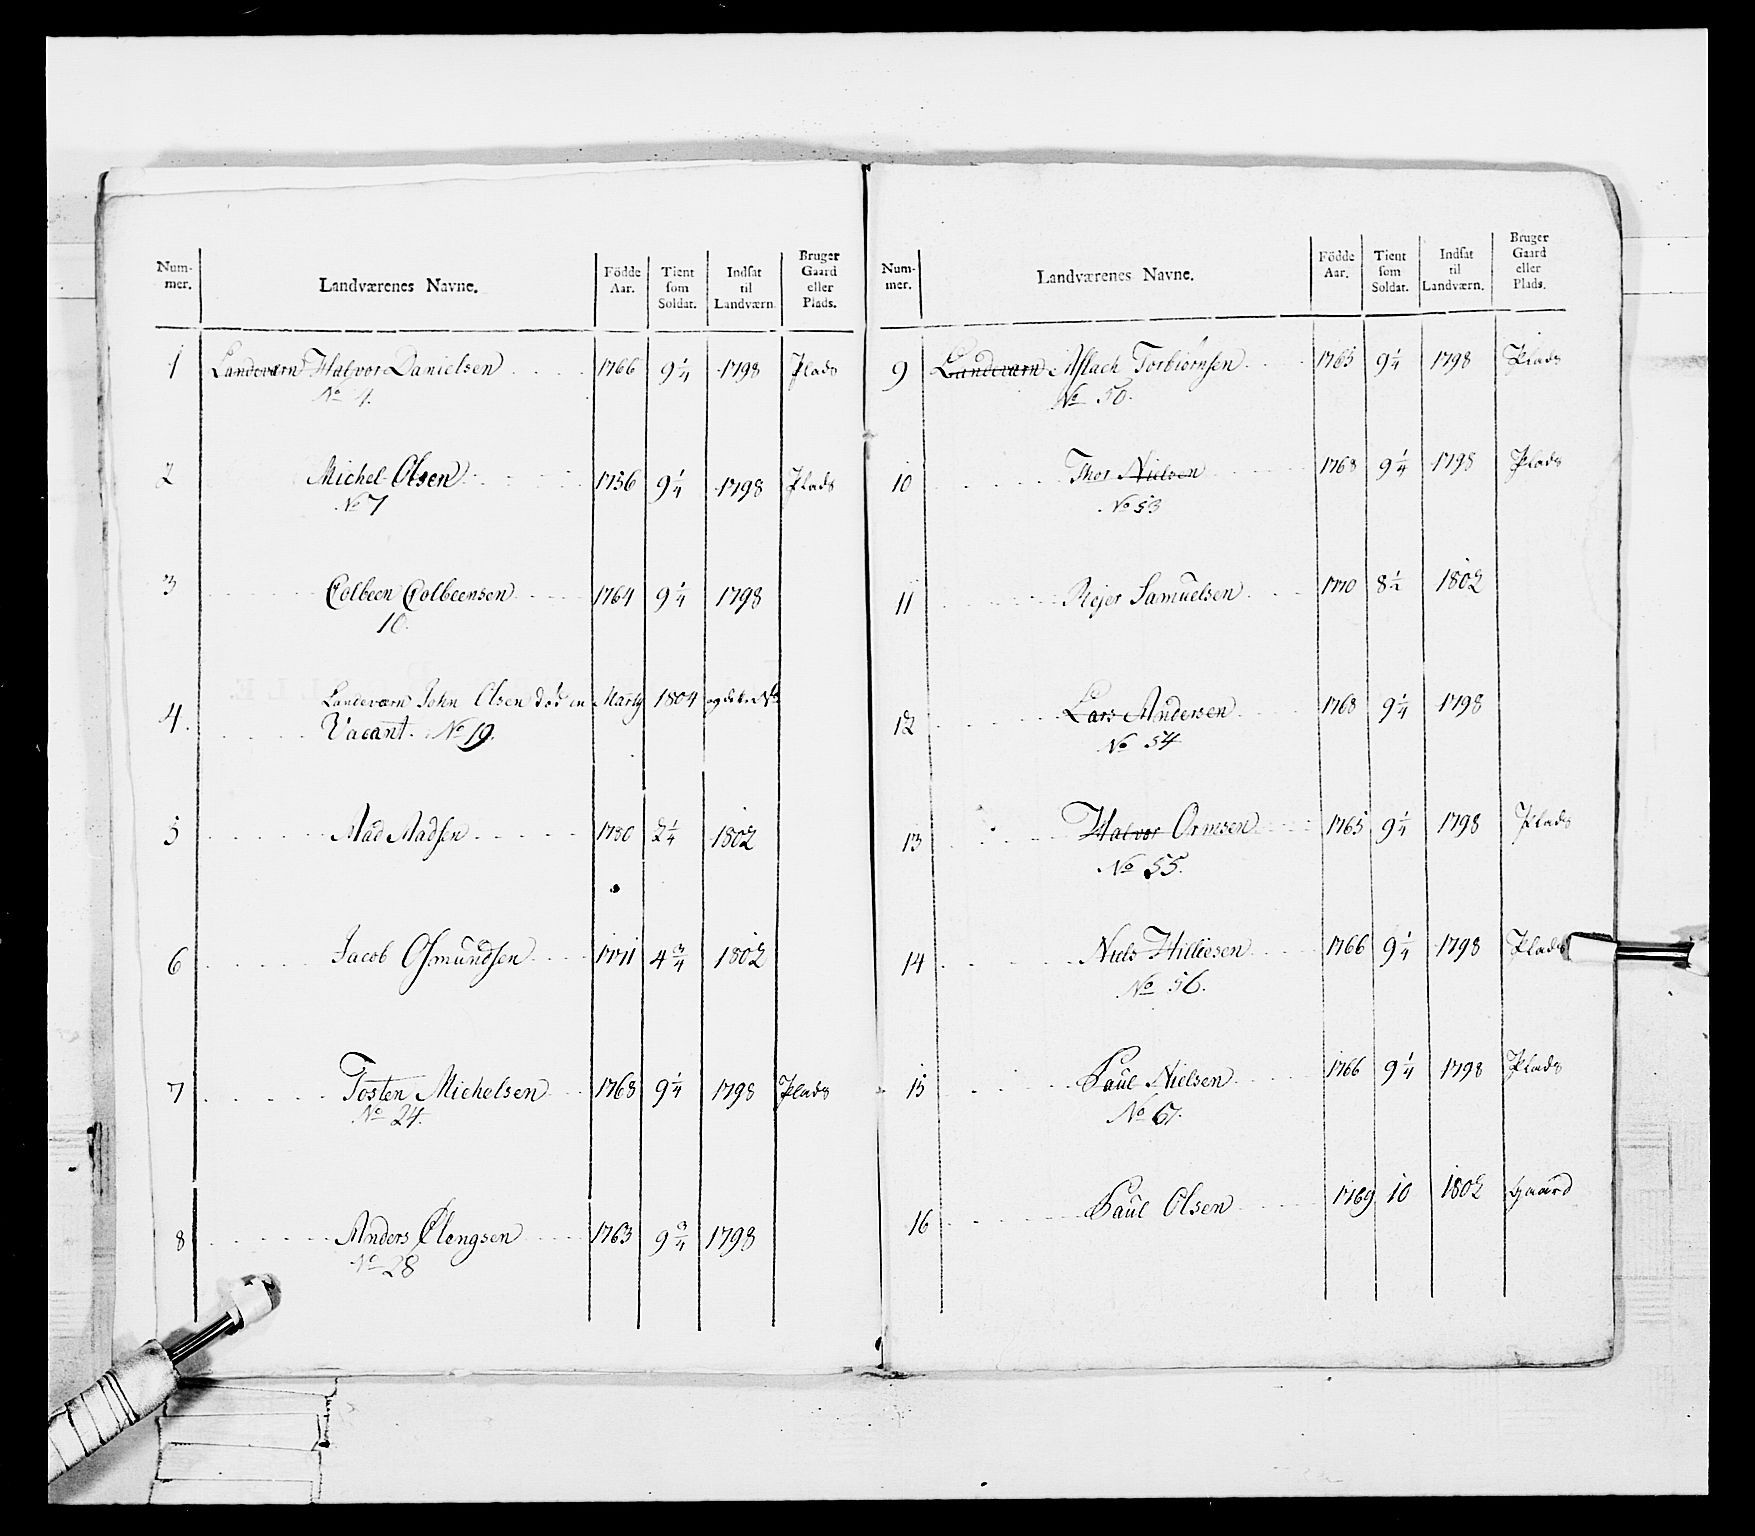 Num-
mer.
Landværenes Navne.
Födde
Aar.
Tient
som
Soldat.
Indsat
til
Landværn.
Bruger
Gaard
eller
Plads.
1 Landeværn Halvor Danielsen 1766 9 1/4 1798 Plads
No 4.
2 Michel Olsen 1756 9 1/4 1798 Plads
No 7
3 Colbeen Colbeensen 1764 9 1/4 1798
10.
Landeværn John Olsen död in Martij 1804 og dette No
4. Vacant. No 19.
5 Mad Madsen 1780 2 1/4 1802
6 Jacob Osmundsen 1771 4 3/4 1802
7 Tosten Michelsen 1768 9 1/4 1798 Plads
No 24.
8 Anders Clengsen 1763 9 3/4 1798
No 28
Num-
mer.
Landværenes Navne.
Födde
Aar.
Tient
som
Soldat.
Indsat
til
Landværn.
Bruger
Gaard
eller
Plads.
9 Landeværn Aslach Torbiörnsen 1765 9 1/4 1798 Plads
No 50.
10 Thor Nielsen 1768 9 1/4 1798 Plads
No 53
11 Rejer Samuelsen 1770 8 1/2 1802
12 Lars Andersen 1768 9 1/4 1798
No 54
13 Halvor Ormsen 1765 9 1/4 1798 Plads
No 55.
14 Niels Hilliesen 1766 9 1/4 1798 Plads
No 56.
15 Paul Nielsen 1766 9 1/4 1798 Plads
No 67.
16 Paul Olsen 1769 10 1802 Gaard